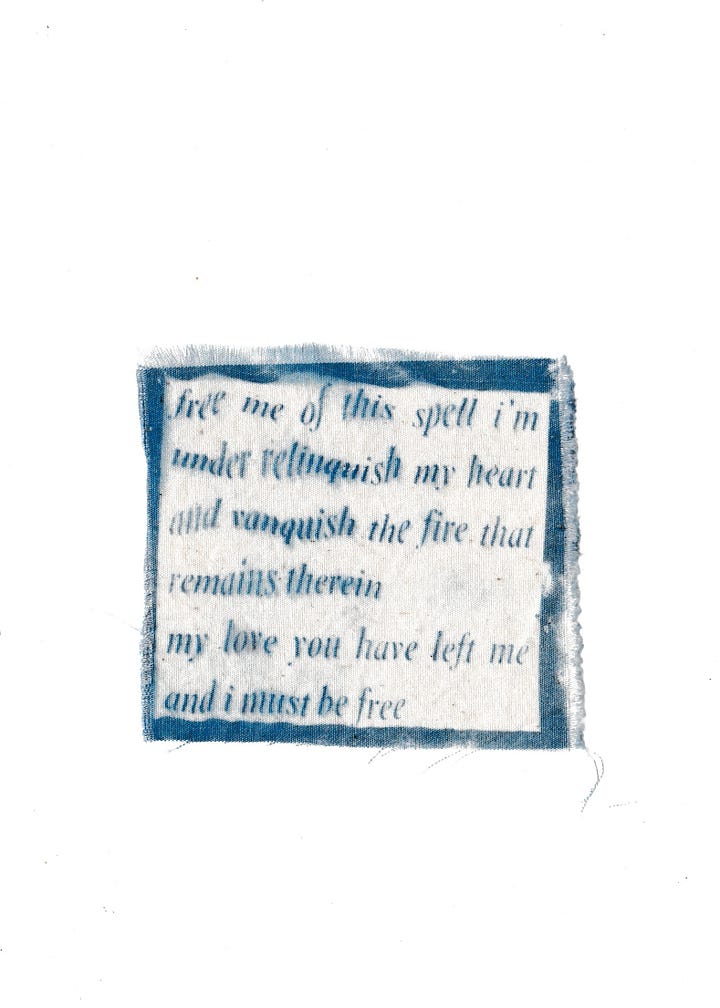 free me of this spell i'm
under relinquish my heart
and vanquish the fire that
remains therein
my love you have left me
and i must be free